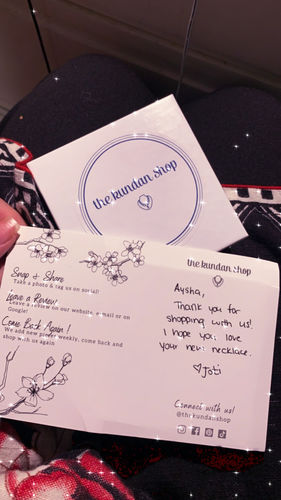 the kundan shop
the kundan shop
Snap & Share
Take a photo & tag us on social!
Leave a Review
Leave a review on our website, email or on
Google!
Come Back Again!
We add new pieces weekly, come back and
shop with us again
Aysha,
Thank you for
shopping with us!
I hope you love
your new necklace.
♡Joti
Connect with us!
@thekundanshop